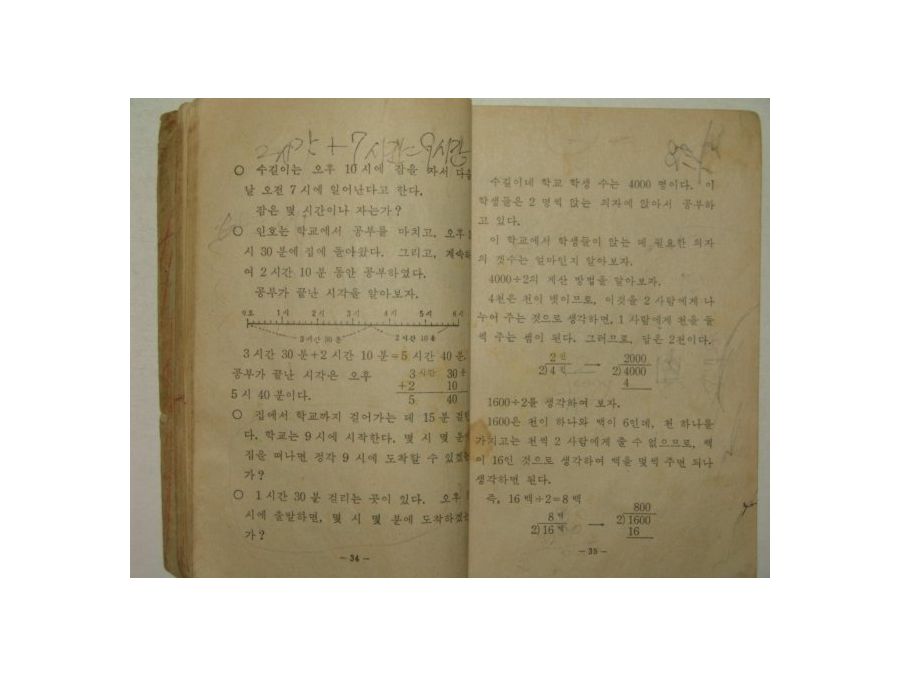 + 7시간=9시간
○ 수길이는 오후 10시에 잠을 자서 다음
날 오전 7시에 일어난다고 한다.
잠은 몇 시간이나 자는가?
○ 인호는 학교에서 공부를 마치고, 오후
시 30분에 집에 돌아왔다. 그리고, 계속하
여 2시간 10분 동안 공부하였다.
공부가 끝난 시각을 알아보자.
정오 1시 2시 3시 4시 5시 6시
3시간 30분 2시간 10분
3시간 30분+2시간 10분=5시간 40분.
공부가 끝난 시각은 오후
5시 40분이다.
3시간 30분
+2 10
5 40
○ 집에서 학교까지 걸어가는 데 15분 걸린
다. 학교는 9시에 시작한다. 몇 시 몇 분에
집을 떠나면 정각 9시에 도착할 수 있겠는
가?
○ 1시간 30분 걸리는 곳이 있다. 오후
시에 출발하면, 몇 시 몇 분에 도착하겠는
가?
— 34 —
수길이네 학교 학생 수는 4000명이다. 이
학생들은 2명씩 앉는 의자에 앉아서 공부하
고 있다.
이 학교에서 학생들이 앉는 데 필요한 의자
의 갯수는 얼마인지 알아보자.
4000÷2의 계산 방법을 알아보자.
4천은 천이 넷이므로, 이것을 2사람에게 나
누어 주는 것으로 생각하면, 1사람에게 천을 둘
씩 주는 셈이 된다. 그러므로, 답은 2천이다.
2천 2000
2)4천 → 2)4000
4
1600÷2를 생각하여 보자.
1600은 천이 하나와 백이 6인데, 천 하나를
가지고는 천씩 2사람에게 줄 수 없으므로, 백
이 16인 것으로 생각하여 백을 몇씩 주면 되나
생각하면 된다.
즉, 16백÷2=8백
8백 800
2)16백 → 2)1600
16
— 35 —